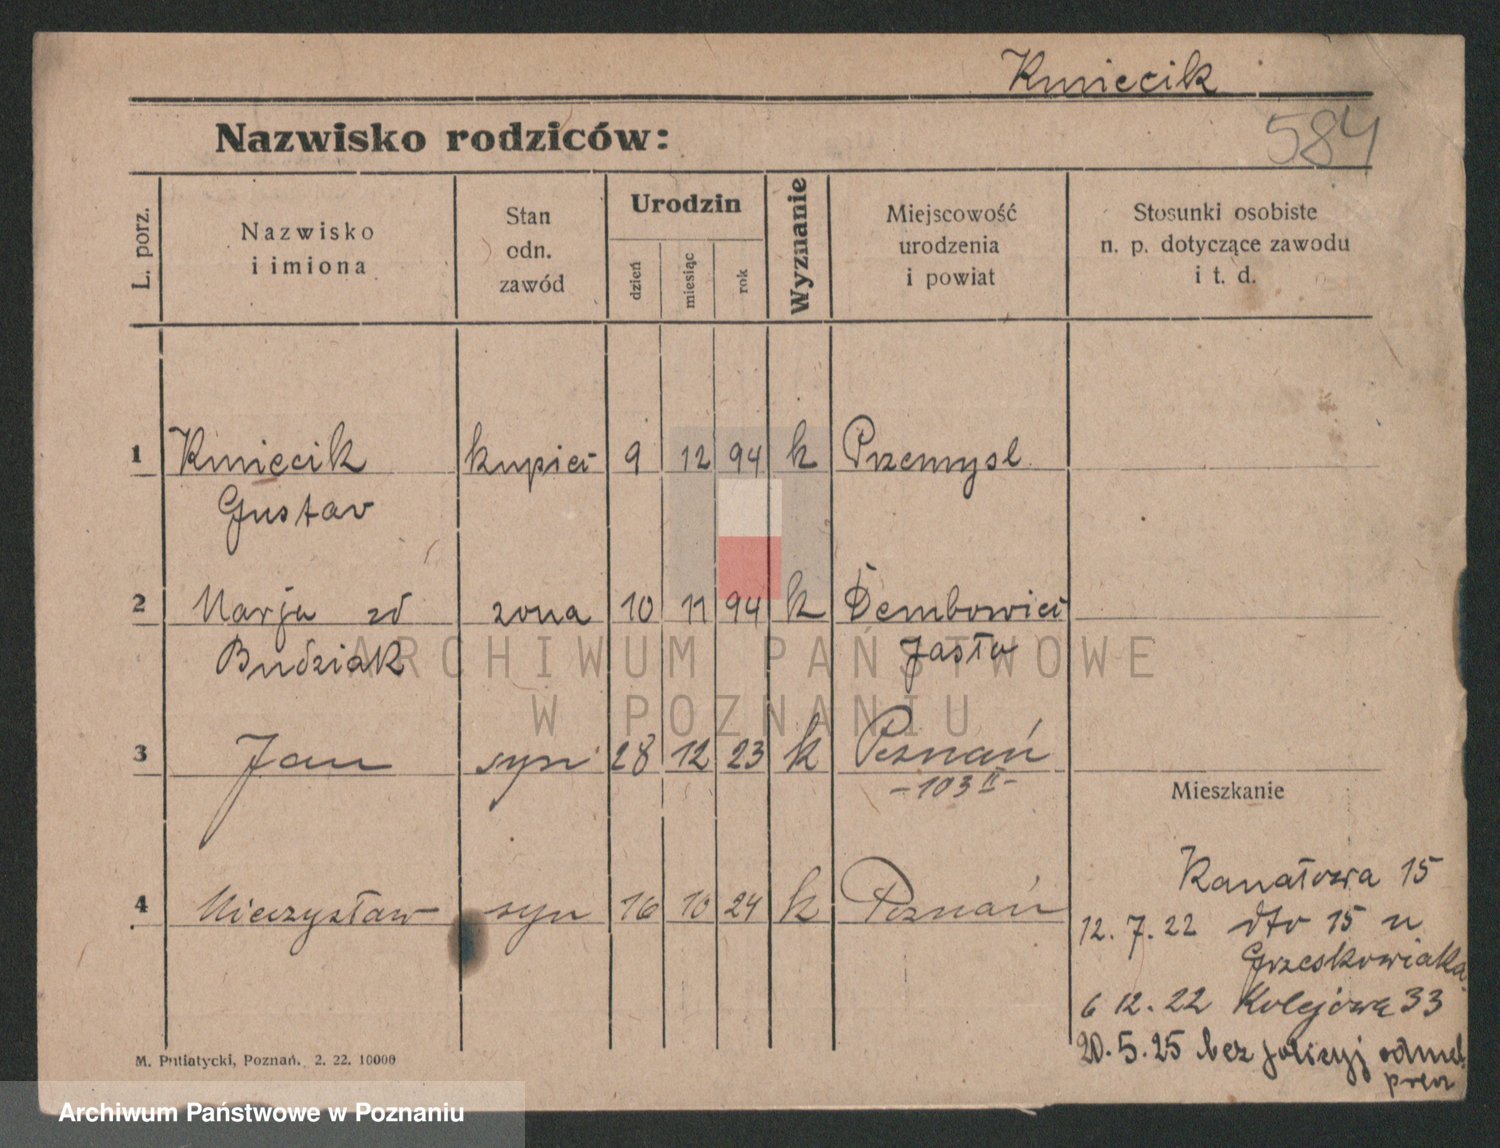 Kmiecik
584
Nazwisko rodziców:
L. porz.
Nazwisko
i imiona
Stan
odn.
zawód
Urodzin
dzień
miesiąc
rok
Wyznanie
Miejscowość
urodzenia
i powiat
Stosunki osobiste
n. p. dotyczące zawodu
i t. d.
1 Kmiecik kupiec 9 12 94 k Przemysl
Gustav
2 Marja zd żona 10 11 94 k Dembowiec
Budziak Jasło
3 Jan syn 28 12 23 k Poznań
-103 II-
Mieszkanie
4 Mieczysław syn 16 10 24 k Poznań
Kanałowa 15
12. 7. 22 dto 15 u
Grzeskowiaka
6 12. 22 Kolejowa 33
20. 5. 25 bez policyj odmel.
M. Putiatycki, Poznań. 2. 22. 10000
ARCHIWUM PAŃSTWOWE
W POZNANIU
Archiwum Państwowe w Poznaniu